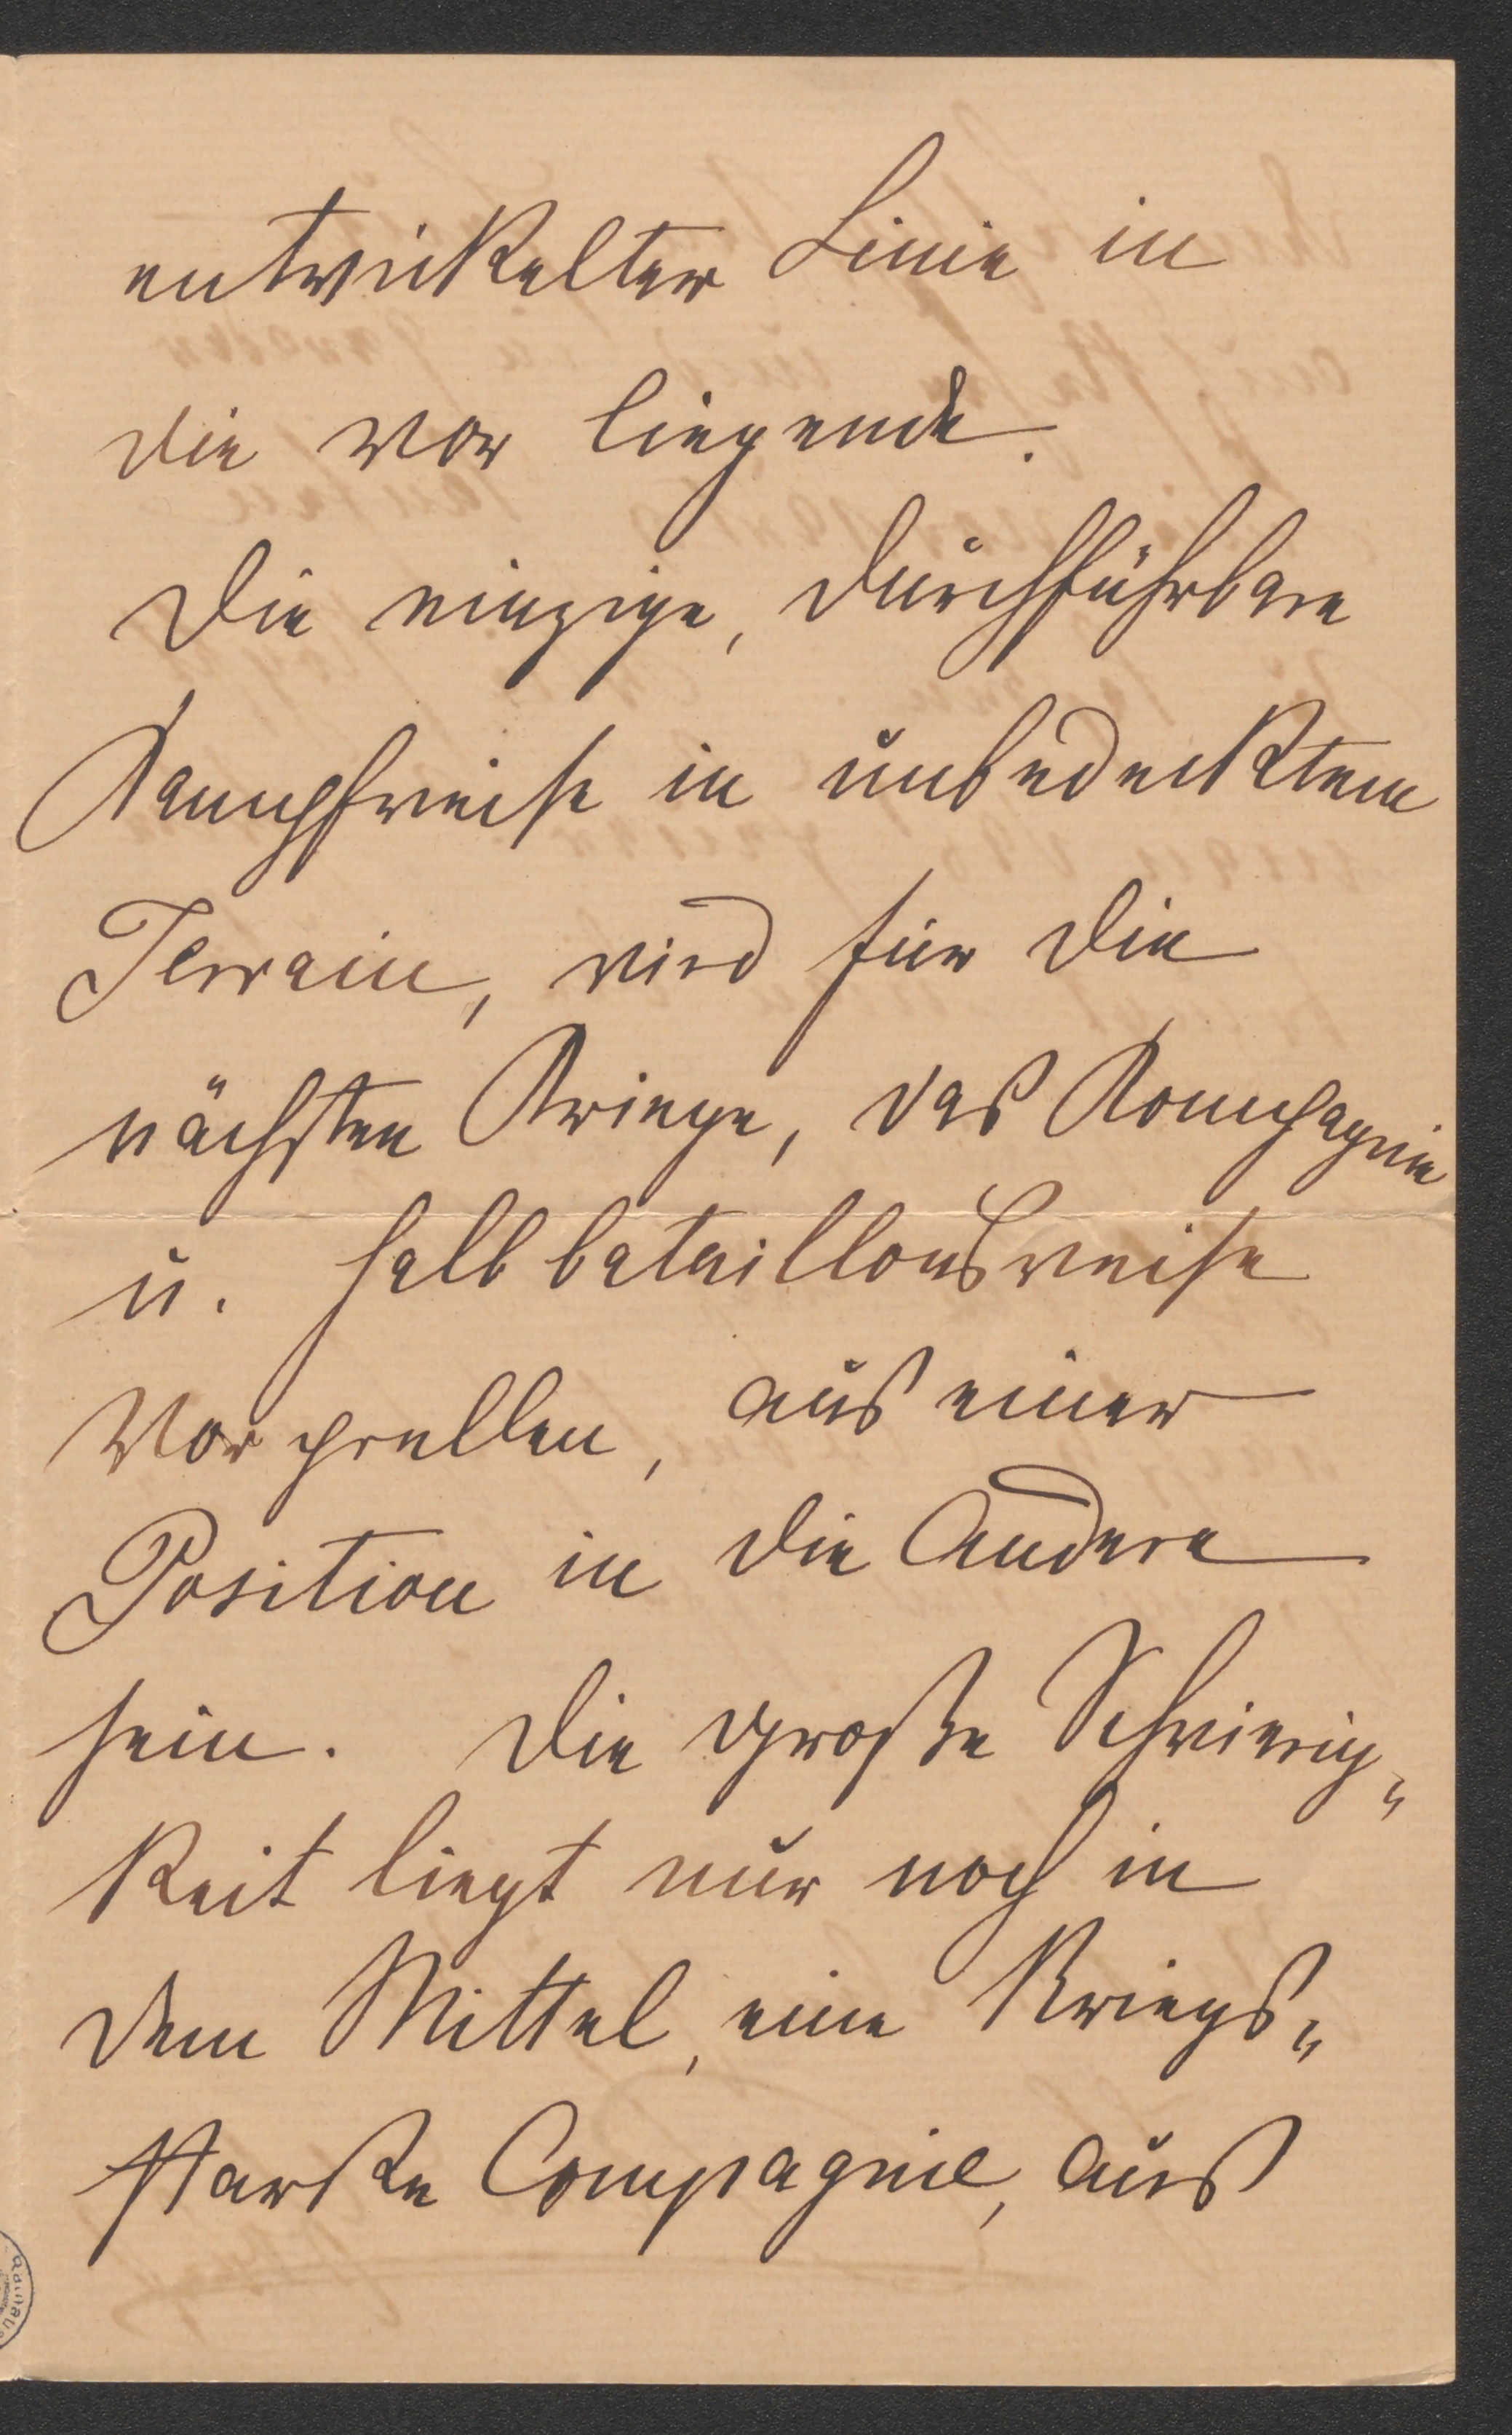 entwickelter Linie in
die vor liegende.
Die einzige, durchführbare
Kampfweise in unbedecktem
Terrain, wird für die
nächsten Kriege, das Kompagnie
u. halbbataillonsweise
Vorprellen, aus einer
Position in die Andere
sein. Die große Schwierig„
keit liegt nur noch in
dem Mittel, eine Kriegs„
starke Compagnie, aus